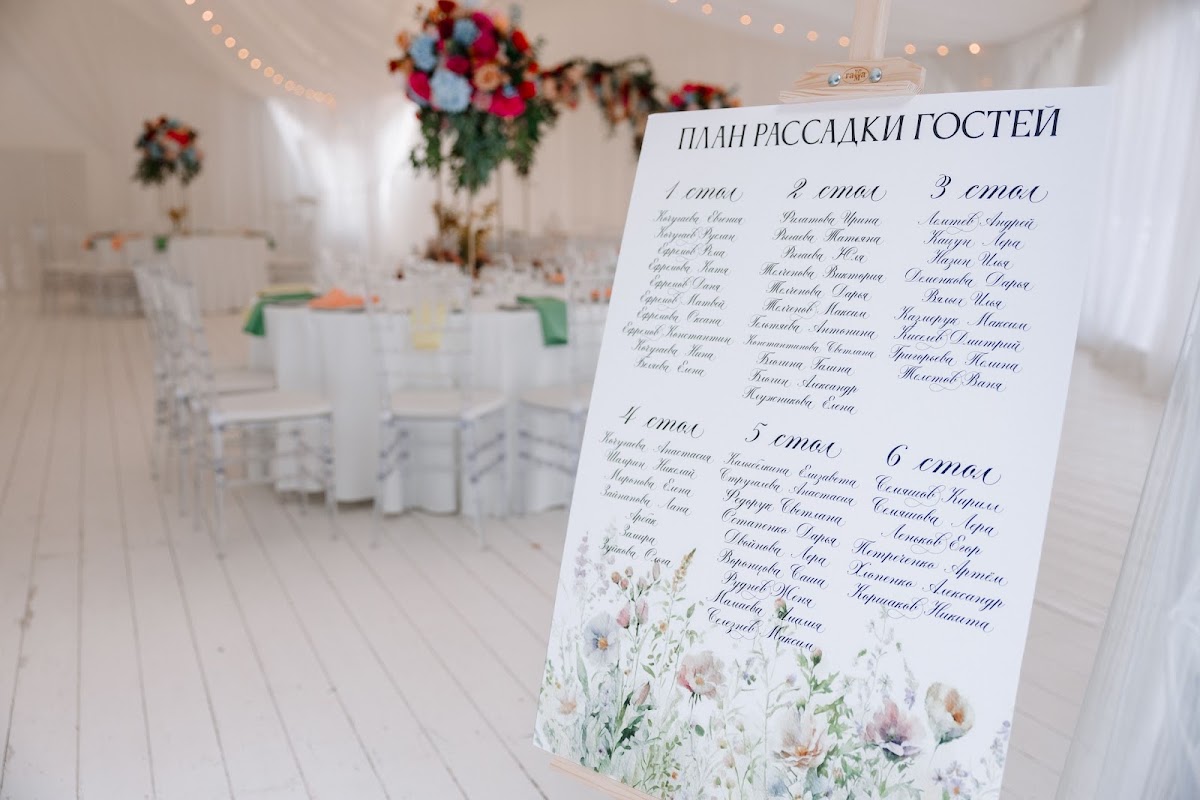 гамма
ПЛАН РАССАДКИ ГОСТЕЙ
1 стол
Кочугаева Евгения
Кочугаев Руслан
Ефремов Рома
Ефремова Катя
Ефремов Даня
Ефремов Матвей
Ефремова Оксана
Ефремов Константин
Кочугаева Нина
Беляева Елена
2 стол
Филатова Ирина
Рыгаева Татьяна
Рыгаева Юля
Толченова Виктория
Толченова Дарья
Толченов Максим
Голтяева Антонина
Константинова Светлана
Блохина Галина
Блохин Александр
Плужникова Елена
3 стол
Ломтёв Андрей
Кацун Лера
Назин Илья
Доменкова Дарья
Вялых Илья
Казмерук Максим
Киселёв Дмитрий
Григорьева Полина
Толстов Ваня
4 стол
Кочугаева Анастасия
Шамрин Николай
Миронова Елена
Зайнапова Лана
Арбак
Замира
Зуйкова Ольга
5 стол
Калыбёлкина Елизавета
Стругалева Анастасия
Федорук Светлана
Остапенко Дарья
Двойнова Лера
Воронцова Саша
Руднев Женя
Мамаева Амалия
Селезнев Максим
6 стол
Семяшов Кирилл
Семяшова Лера
Лепехов Егор
Петреченко Артём
Хлопенко Александр
Коршаков Никита